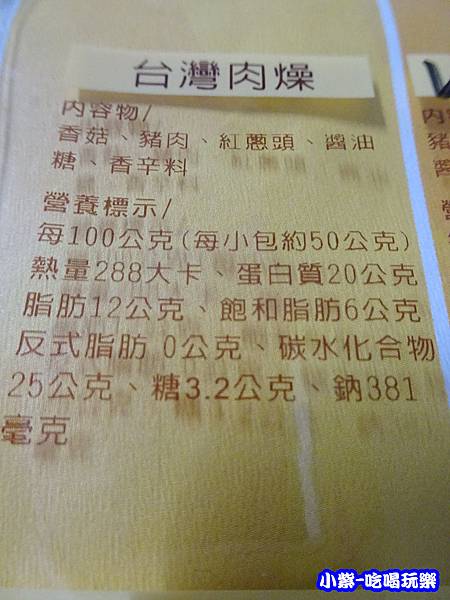 台灣肉燥
內容物/
香菇、豬肉、紅蔥頭、醬油
糖、香辛料
營養標示/
每100公克(每小包約50公克)
熱量288大卡、蛋白質20公克
脂肪12公克、飽和脂肪6公克
反式脂肪 0公克、碳水化合物
25公克、糖3.2公克、鈉381
毫克
內
豬
醬
小紫-吃喝玩樂